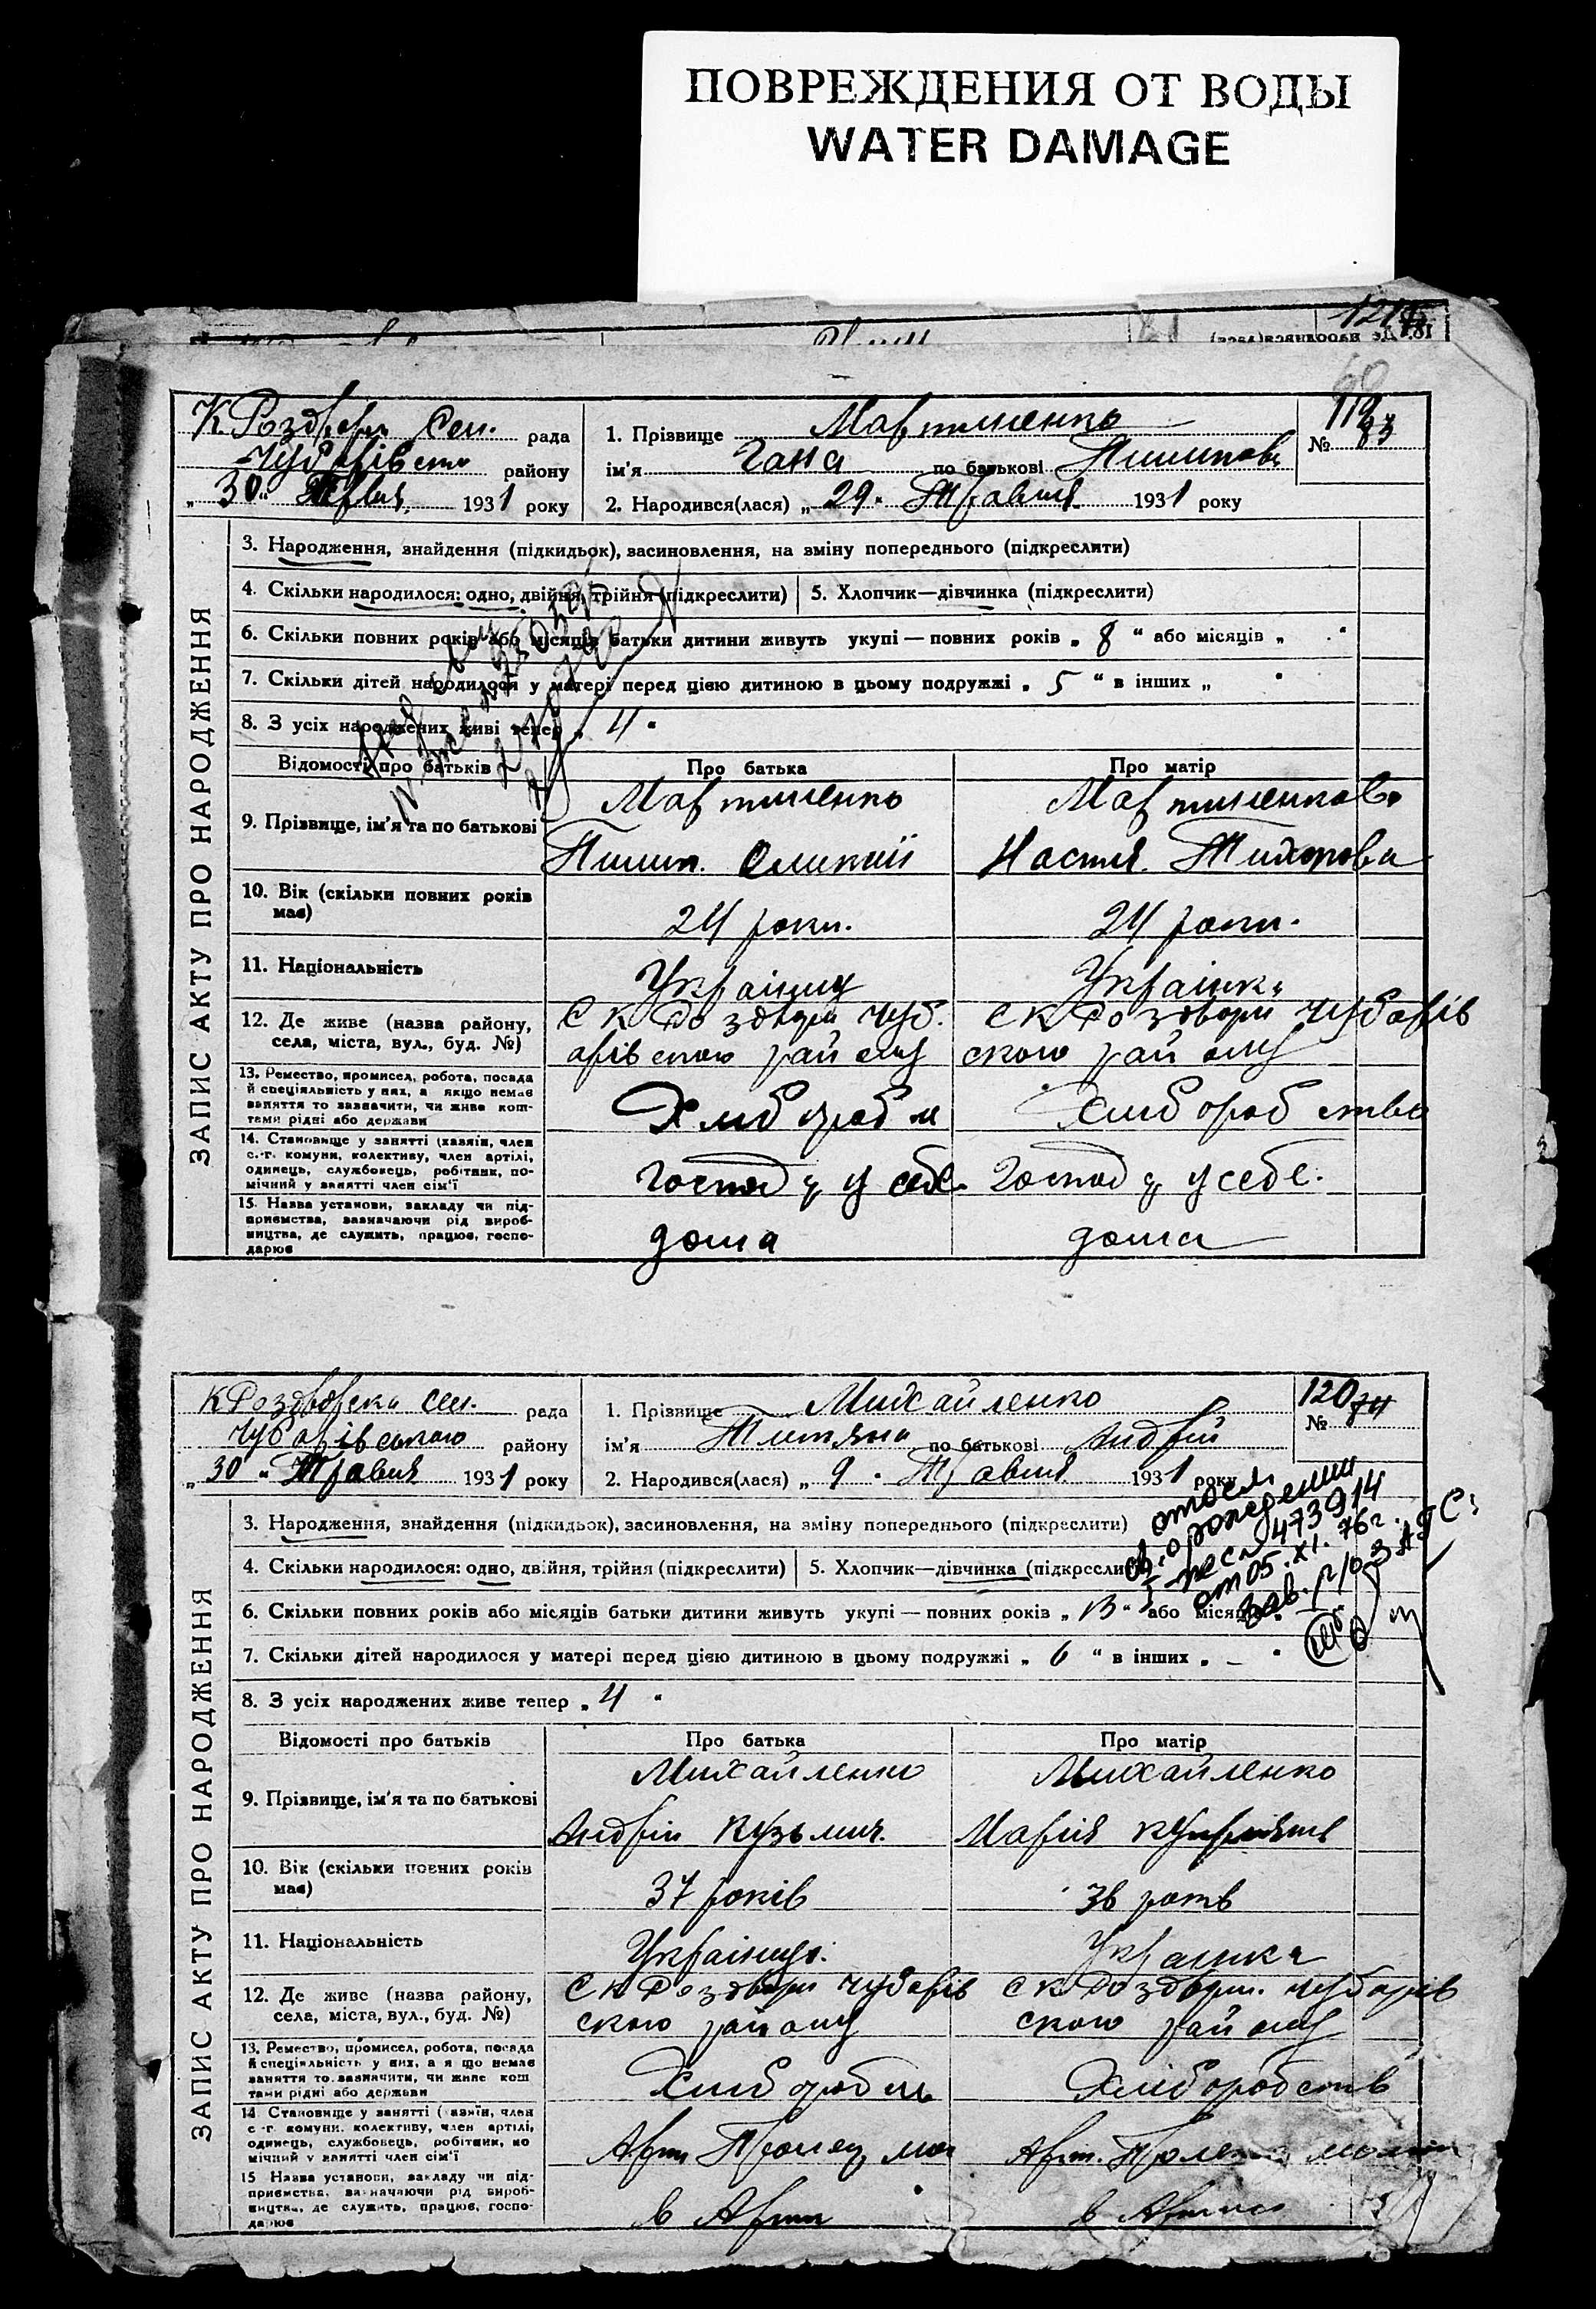 ПОВРЕЖДЕНИЯ ОТ ВОДЫ
WATER DAMAGE
К. Роздорськ. Сел. рада
Чубарівськ району
„30“ Травня 1931 року
1. Прізвище Мартиненко
ім'я Гана по батькові Пилипова
2. Народився(лася) „29“ Травня 1931 року
№ 119
83
ЗАПИС АКТУ ПРО НАРОДЖЕННЯ
3. Народження, знайдення (підкидьок), засиновлення, на зміну попереднього (підкреслити)
4. Скільки народилося: одно, двійня, трійня (підкреслити) 5. Хлопчик—дівчинка (підкреслити)
6. Скільки повних років або місяців батьки дитини живуть укупі — повних років „ 8 “ або місяців „ “
7. Скільки дітей народилося у матері перед цією дитиною в цьому подружжі „ 5 “ в інших „ “
8. З усіх народжених живі тепер „ 4 “
Відомості про батьків Про батька Про матір
9. Прізвище, ім'я та по батькові
Мартиненко Мартиненкова
Пилип. Настя. Тихонова
10. Вік (скільки повних років має)
24 роки. 24 роки.
11. Національність
Українец Українка
12. Де живе (назва району, села, міста, вул., буд. №)
С К Роздори Чуб. С К Роздори Чубарів
арівского району ского району
13. Ремество, промисел, робота, посада й спеціяльність у них, а якщо немає заняття то зазначити, чи живе коштами рідні або держави
Хлибороб Хлибороб ство
14. Становище у занятті (хазяїн, член с.-г. комуни, колективу, член артілі, одинець, службовець, робітник, помічний у занятті член сім'ї
Господ у себе. Господ у себе.
15. Назва установи, закладу чи підприємства, зазначаючи рід виробництва, де служить, працює, господарює
дома дома
К Роздорска сел. рада
Чубарівського району
„30“ Травня 1931 року
1. Прізвище Михайленко
ім'я Титяна по батькові Андрій
2. Народився(лася) „9“ Травня 1931 року
№ 120
84
св. о рождении
473914
от 05.XI.76г.
Зав. р/о ЗАГС
ЗАПИС АКТУ ПРО НАРОДЖЕННЯ
3. Народження, знайдення (підкидьок), засиновлення, на зміну попереднього (підкреслити)
4. Скільки народилося: одно, двійня, трійня (підкреслити) 5. Хлопчик—дівчинка (підкреслити)
6. Скільки повних років або місяців батьки дитини живуть укупі — повних років „ 13 “ або місяців
7. Скільки дітей народилося у матері перед цією дитиною в цьому подружжі „ 6 “ в інших „ – “
8. З усіх народжених живе тепер „ 4 “
Відомості про батьків Про батька Про матір
9. Прізвище, ім'я та по батькові
Михайленко Михайленко
Андрій Кузьмич. Марія
10. Вік (скільки повних років має)
37 років 36 років
11. Національність
Українец. Українка
12. Де живе (назва району, села, міста, вул., буд. №)
С К Роздори Чубарів С К Роздори. Чубарів
ского району ского району
13. Ремество, промисел, робота, посада й спеціяльність у них, а я що немає заняття то зазначити, чи живе коштами рідні або держави
Хлибороб Хлиборобств
14 Становище у занятті (хазяїн, член с-г. комуни, колективу, член артілі, одинець, службовець, робітник, помічний у занятті член сім'ї
Арт Арт.
15 Назва установи, закладу чи підприємства, зазначаючи рід виробництва, де служить, працює, господарює
в Арт в Арт